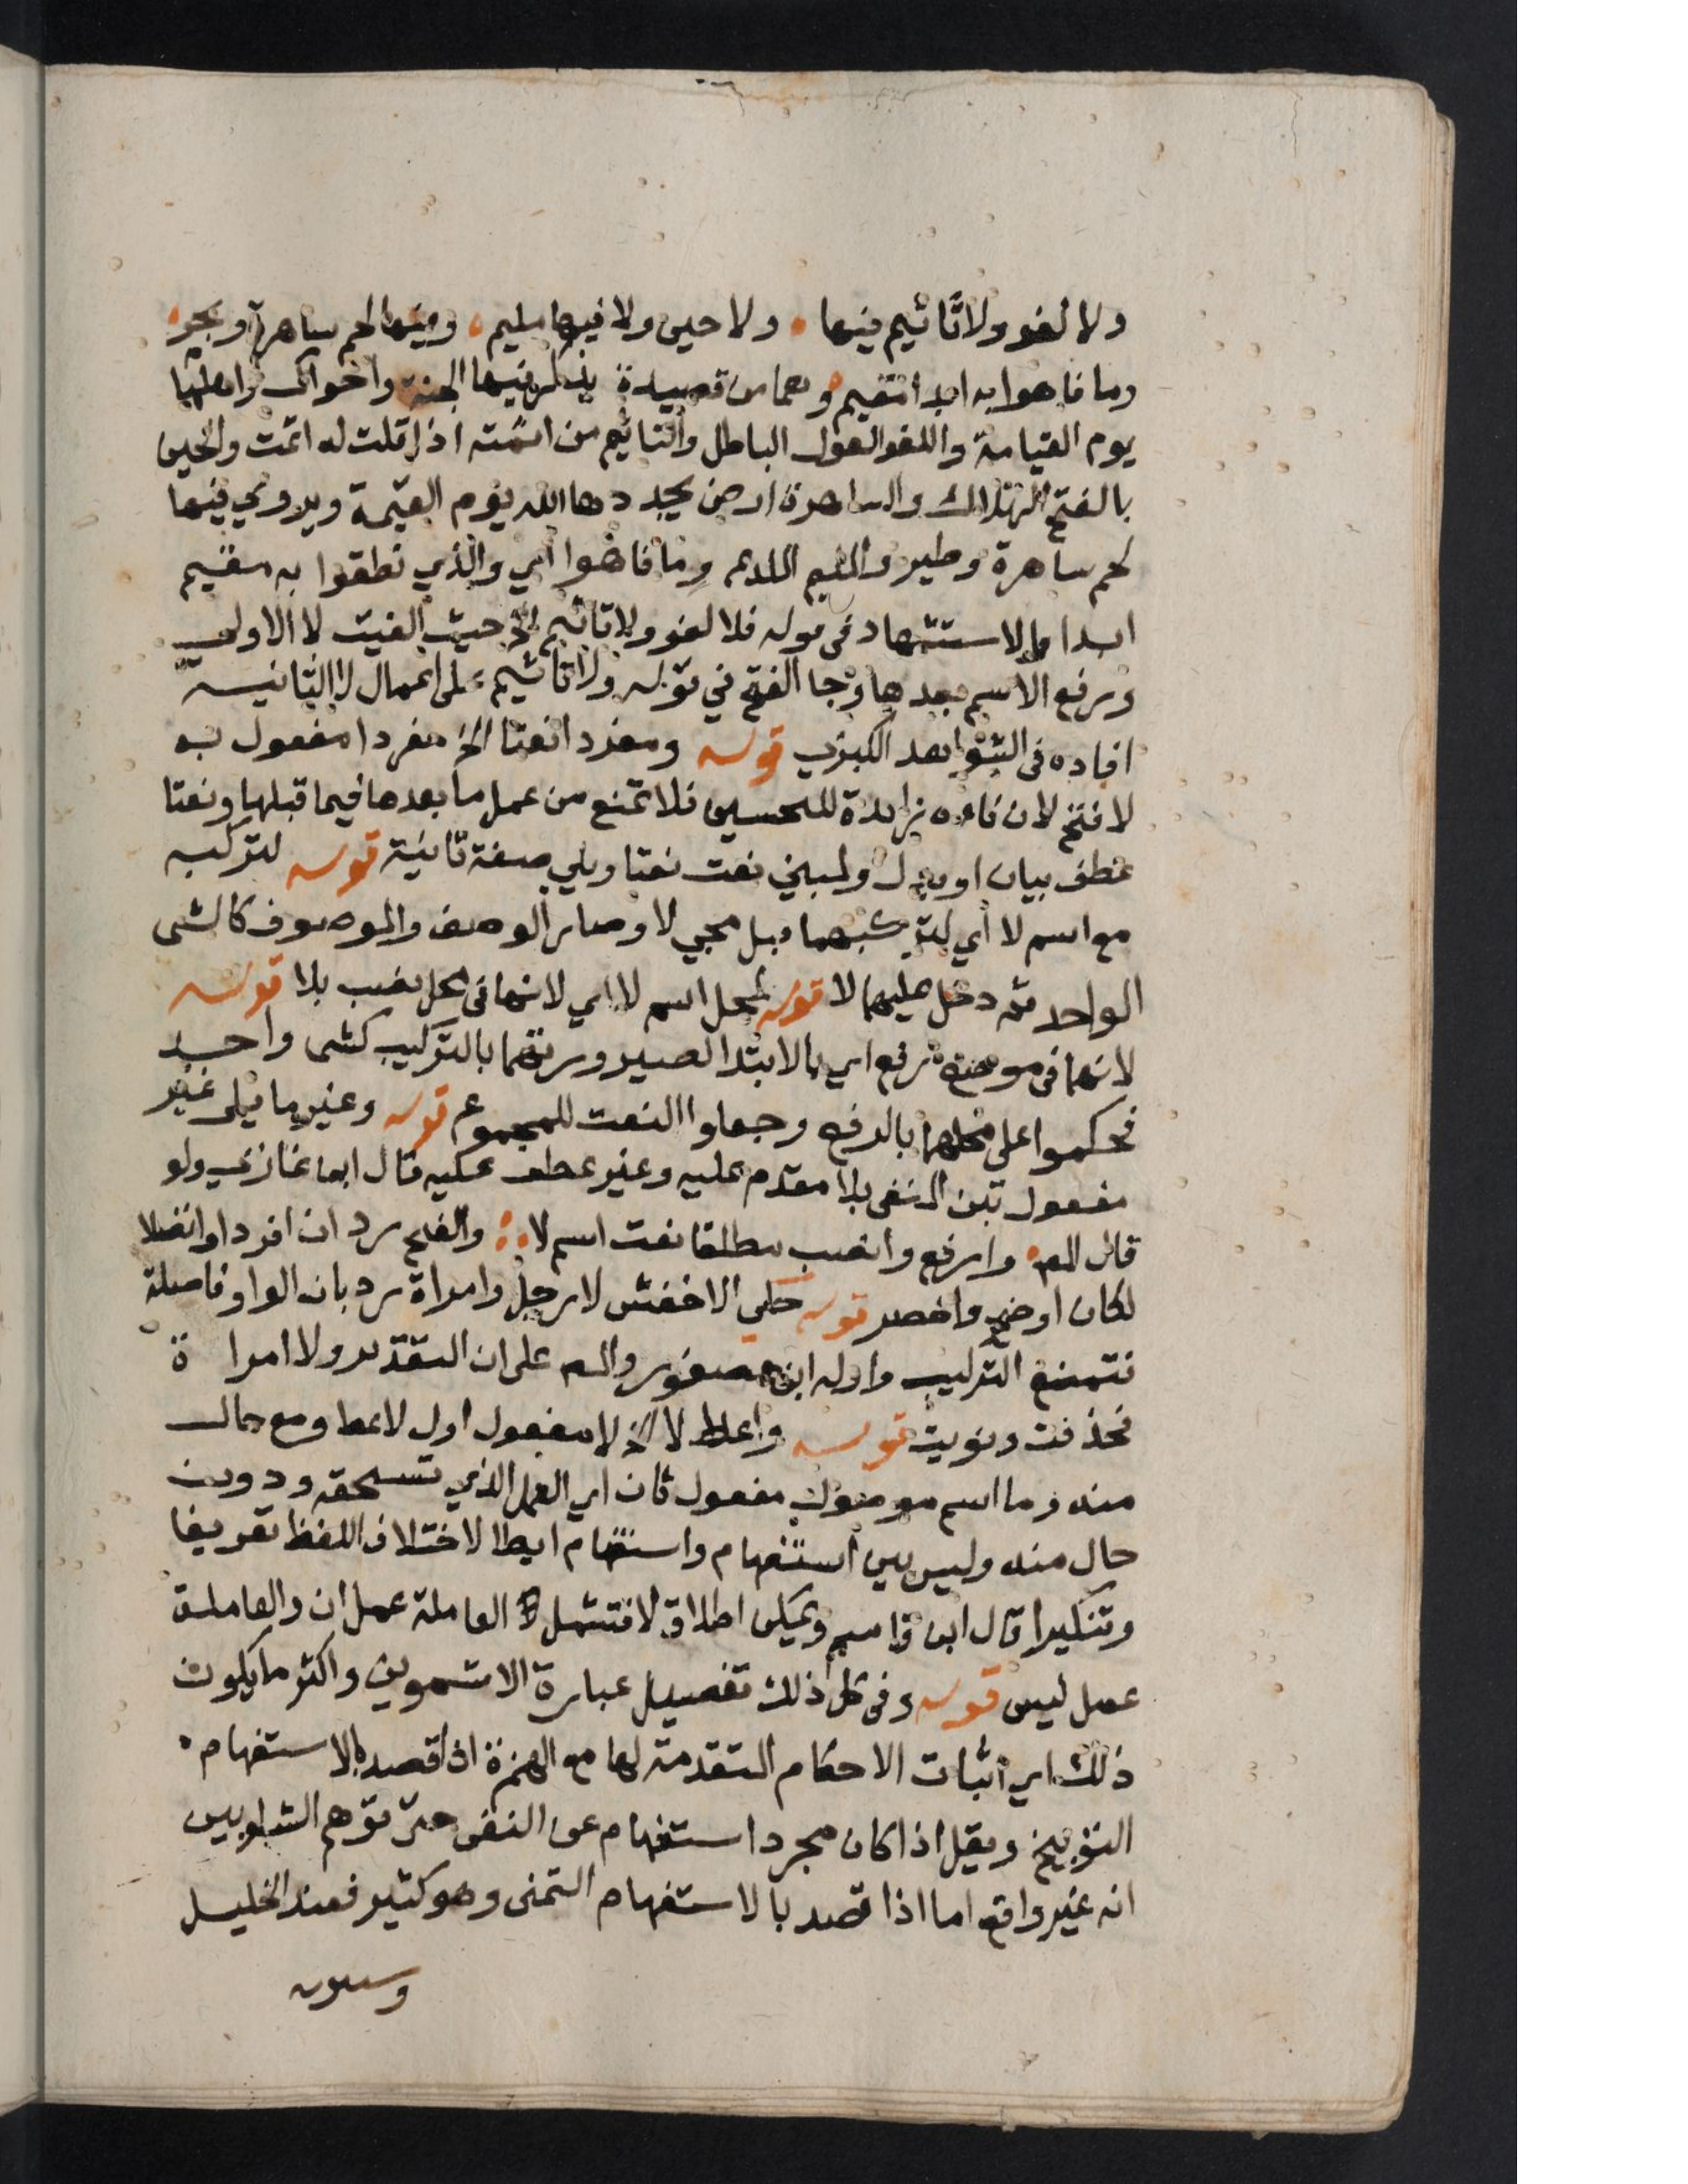 ولا لغو ولا تاثيم فيها ولا حين ولا فيها مليم وفيها لحم ساهرة وبحر
وما فاهوا به ابدا مقيم وهما من قصيدة يذكر فيها الجنة واحوال واهلها
يوم القيامة واللغو القول الباطل والتاثيم من اثمته اذا قلت له اثمت والحين
بالفتح الهلاك والساهرة ارض يجددها الله يوم القيمة ويروي فيها
لحم ساهرة وطير والمليم وما فاهوا اي والذي نطقوا به مقيم
ابدا والاستشهاد في قوله فلا لغو ولا تاثيم الخ حيث الغيت لا الاولى
ورفع الاسم بعدها وجا الفتح في قوله ولا تاثيم على اعمال لا الثانية
افاده في الشواهد الكبرى قوله ومفردا نعتا الخ مفردا مفعول به
لافتح لان فاءه زايدة للتحسين فلا تمنع من عمل ما بعدها فيما قبلها ونعتا
عطف بيان او بدل ولمبني نعت نعتا ويلي صفة ثانية قوله لتركبه
مع اسم لا اي لتركبهما قبل مجي لا وصار الوصف والموصوف كالشى
الواحد ثم دخل عليهما لا قوله لمحل اسم لا اي لانها في محل نصب بلا قوله
لانهما في موضع رفع اي بالابتدا لصيرورتهما بالتركيب كشى واحد
فحكموا على محلهما بالرفع وجعلوا النعت للمجموع قوله وغير ما يلي غير
مفعول تبن المنفي بلا مقدم عليه وغير عطف عليه قال ابن غازي ولو
قال المص وارفع وانصب مطلقا نعت اسم لا والفتح رد ان افردا وانفصلا
لكان اوضح واخصر قوله حكي الاخفش لا رجل وامراة رد بان الواو فاصلة
فتمنع التركيب واوله ابن عصفور والم على ان التقدير ولا امراة
فحذفت ونويت قوله واعط لا الخ لا مفعول اول لاعط ومع حال
منه وما اسم موصول مفعول ثان اي العمل الذي تستحقه ودون
حال منه وليس بين استفهام واستفهام ايطا لاختلاف اللفظ تعريفا
وتنكيرا قال ابن قاسم ويمكن اطلاق لا فتشمل العاملة عمل ان والعاملة
عمل ليس قوله وفي كل ذلك تفصيل عبارة الاشموني واكثر ما يكون
ذلك اي اثبات الاحكام المتقدمة لها مع الهمزة اذا قصد بالاستفهام
التوبيخ ويقل اذا كان مجرد استفهام عن النفى حتى توهم الشلوبين
انه غير واقع اما اذا قصد بالاستفهام التمنى وهو كثير فعند الخليل